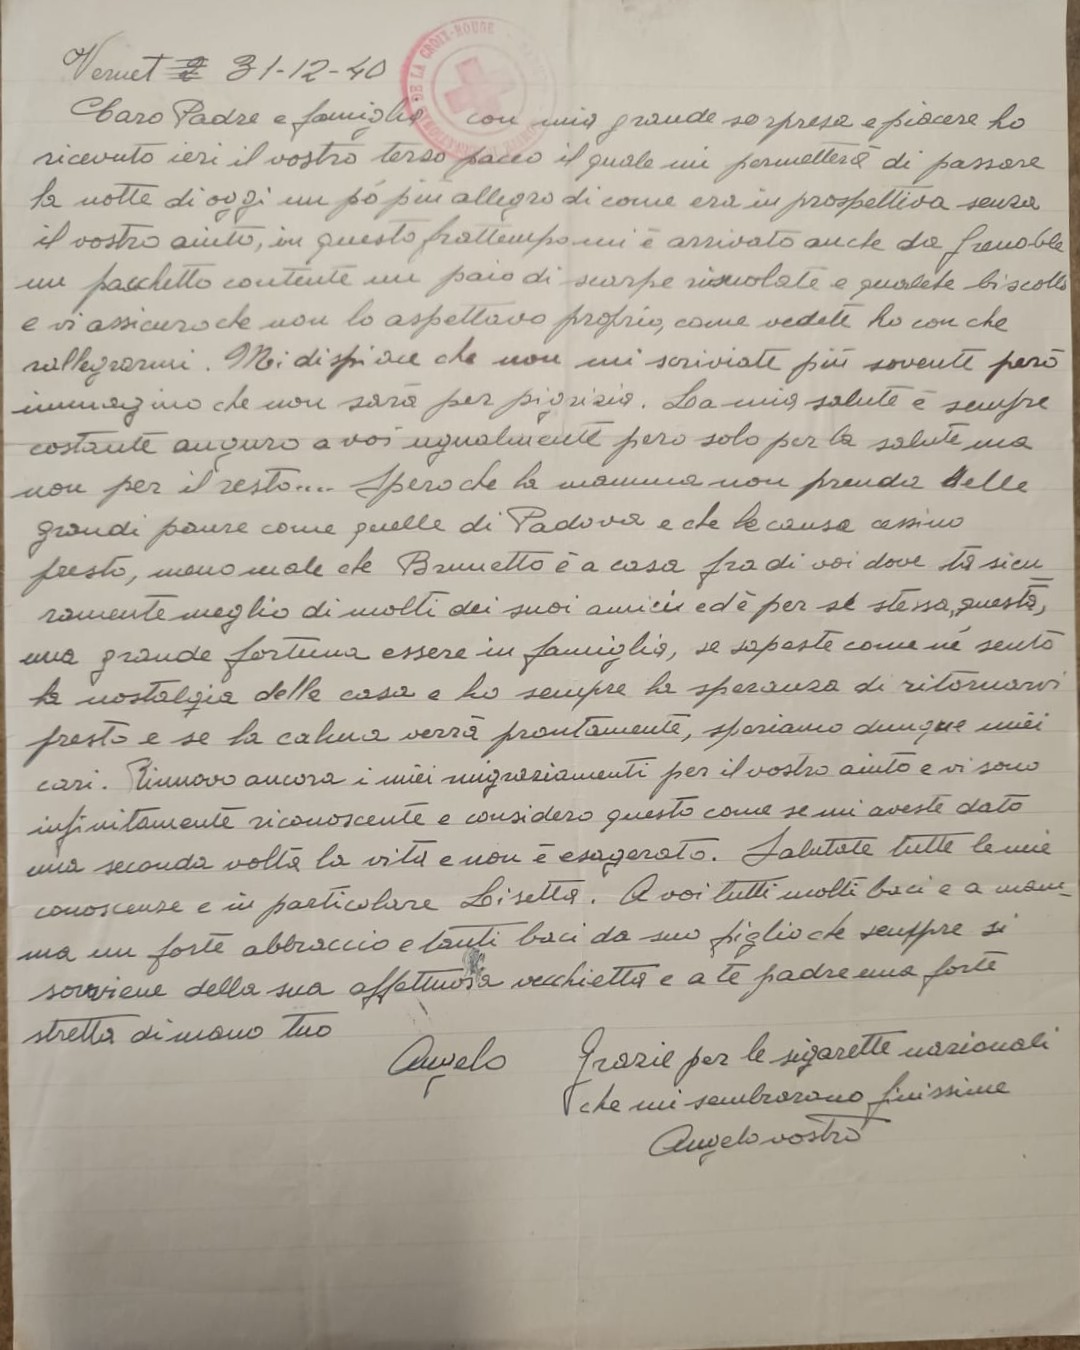 Vernet 31-12-40
DE LA CROIX-ROUGE
Caro Padre e famiglia con mia grande sorpresa e piacere ho
ricevuto ieri il vostro terso pacco il quale mi permetterà di passare
la notte di oggi un pó piu allegro di come era in prospettiva senza
il vostro aiuto, in questo frattempo mi è arrivato anche da Grenoble
un pacchetto contente un paio di scarpe risuolate e qualche biscotto
e vi assicuro che non lo aspettavo proprio, come vedete ho con che
rallegrarmi. Mi dispiace che non mi scriviate più sovente però
immagino che non sarà per pigrizia. La mia salute è sempre
costante auguro a voi ugualmente pero solo per la salute ma
non per il resto.... Spero che la mamma non prenda delle
grandi paure come quelle di Padova e che le causa cessino
presto, meno male che Brunetto è a casa fra di voi dove stà sicu
ramente meglio di molti dei suoi amici ed è per se stessa, questa,
una grande fortuna essere in famiglia, se sapeste come né sento
la nostalgia della casa e ho sempre la speranza di ritornarvi
presto e se la calma verrà prontamente, speriamo dunque miei
cari. Rinnovo ancora i miei ringraziamenti per il vostro aiuto e vi sono
infinitamente riconoscente e considero questo come se mi aveste dato
una seconda volta la vita e non è esagerato. Salutate tutte le mie
conoscenze e in particolare Lisetta. A voi tutti molti baci e a mam-
ma un forte abbraccio e tanti baci da suo figlio che sempre si
sovviene della sua affettuosa vecchietta e a te padre una forte
stretta di mano tuo
Angelo
Grazie per le sigarette nazionali
che mi sembrarano finissime
Angelo vostro